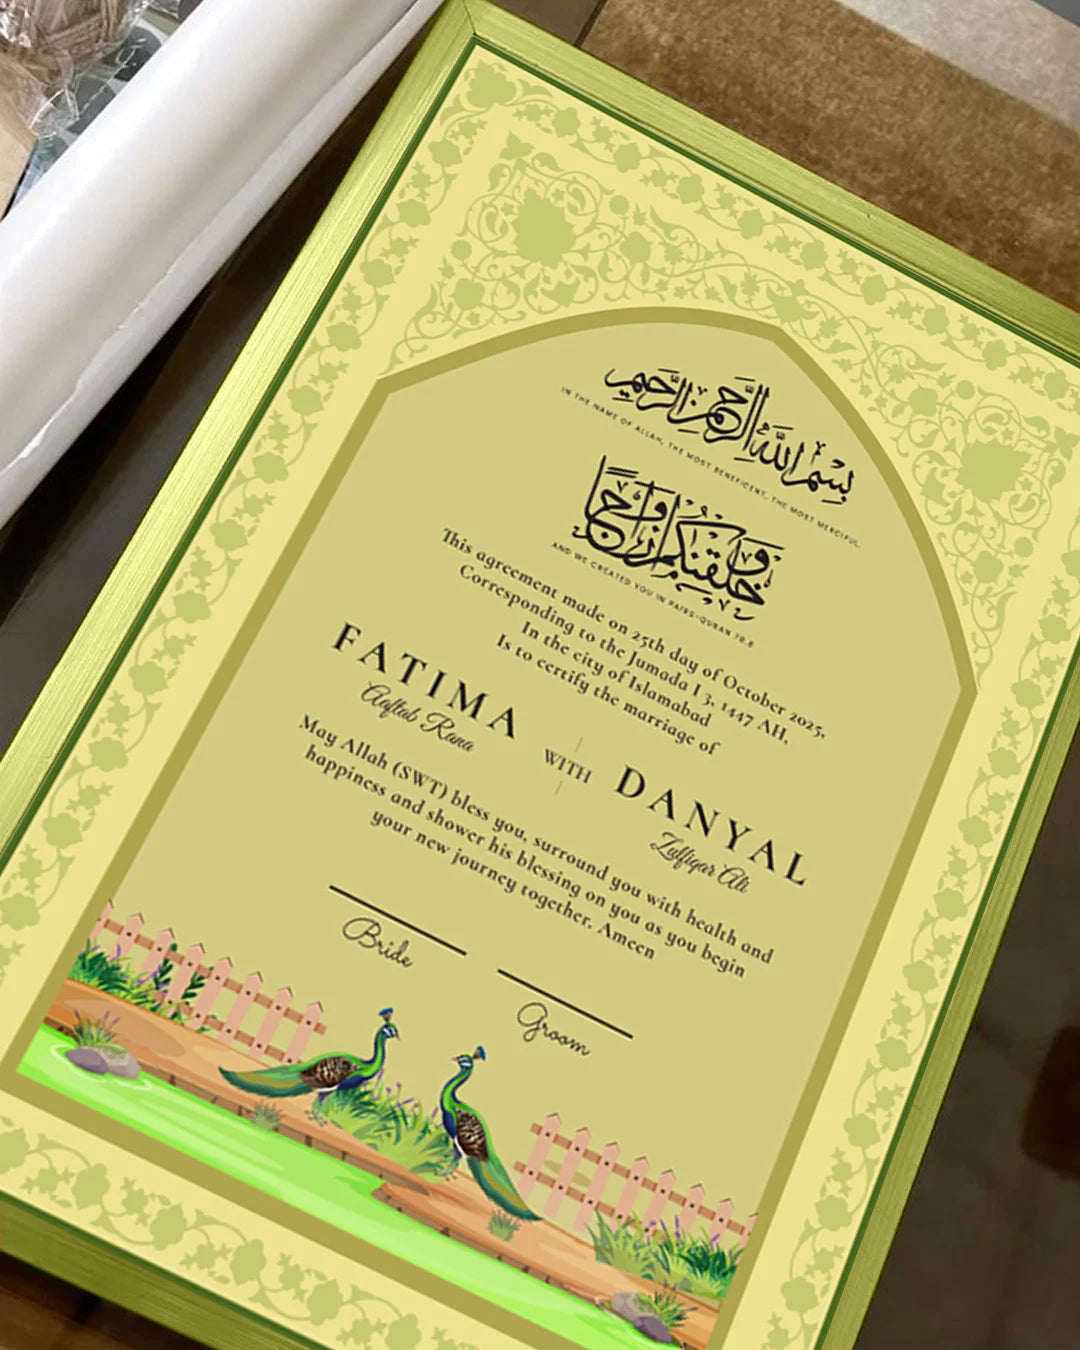 بسم الله الرحمن الرحيم
IN THE NAME OF ALLAH, THE MOST BENEFICENT, THE MOST MERCIFUL.
وخلقنكم ازوجا
AND WE CREATED YOU IN PAIRS-QURAN 78.8
This agreement made on 25th day of October 2025,
Corresponding to the Jumada I 3, 1447 AH,
In the city of Islamabad
Is to certify the marriage of
FATIMA
Aaftab Rana
WITH
DANYAL
Zulfiqar Ali
May Allah (SWT) bless you, surround you with health and
happiness and shower his blessing on you as you begin
your new journey together. Ameen
Bride
Groom